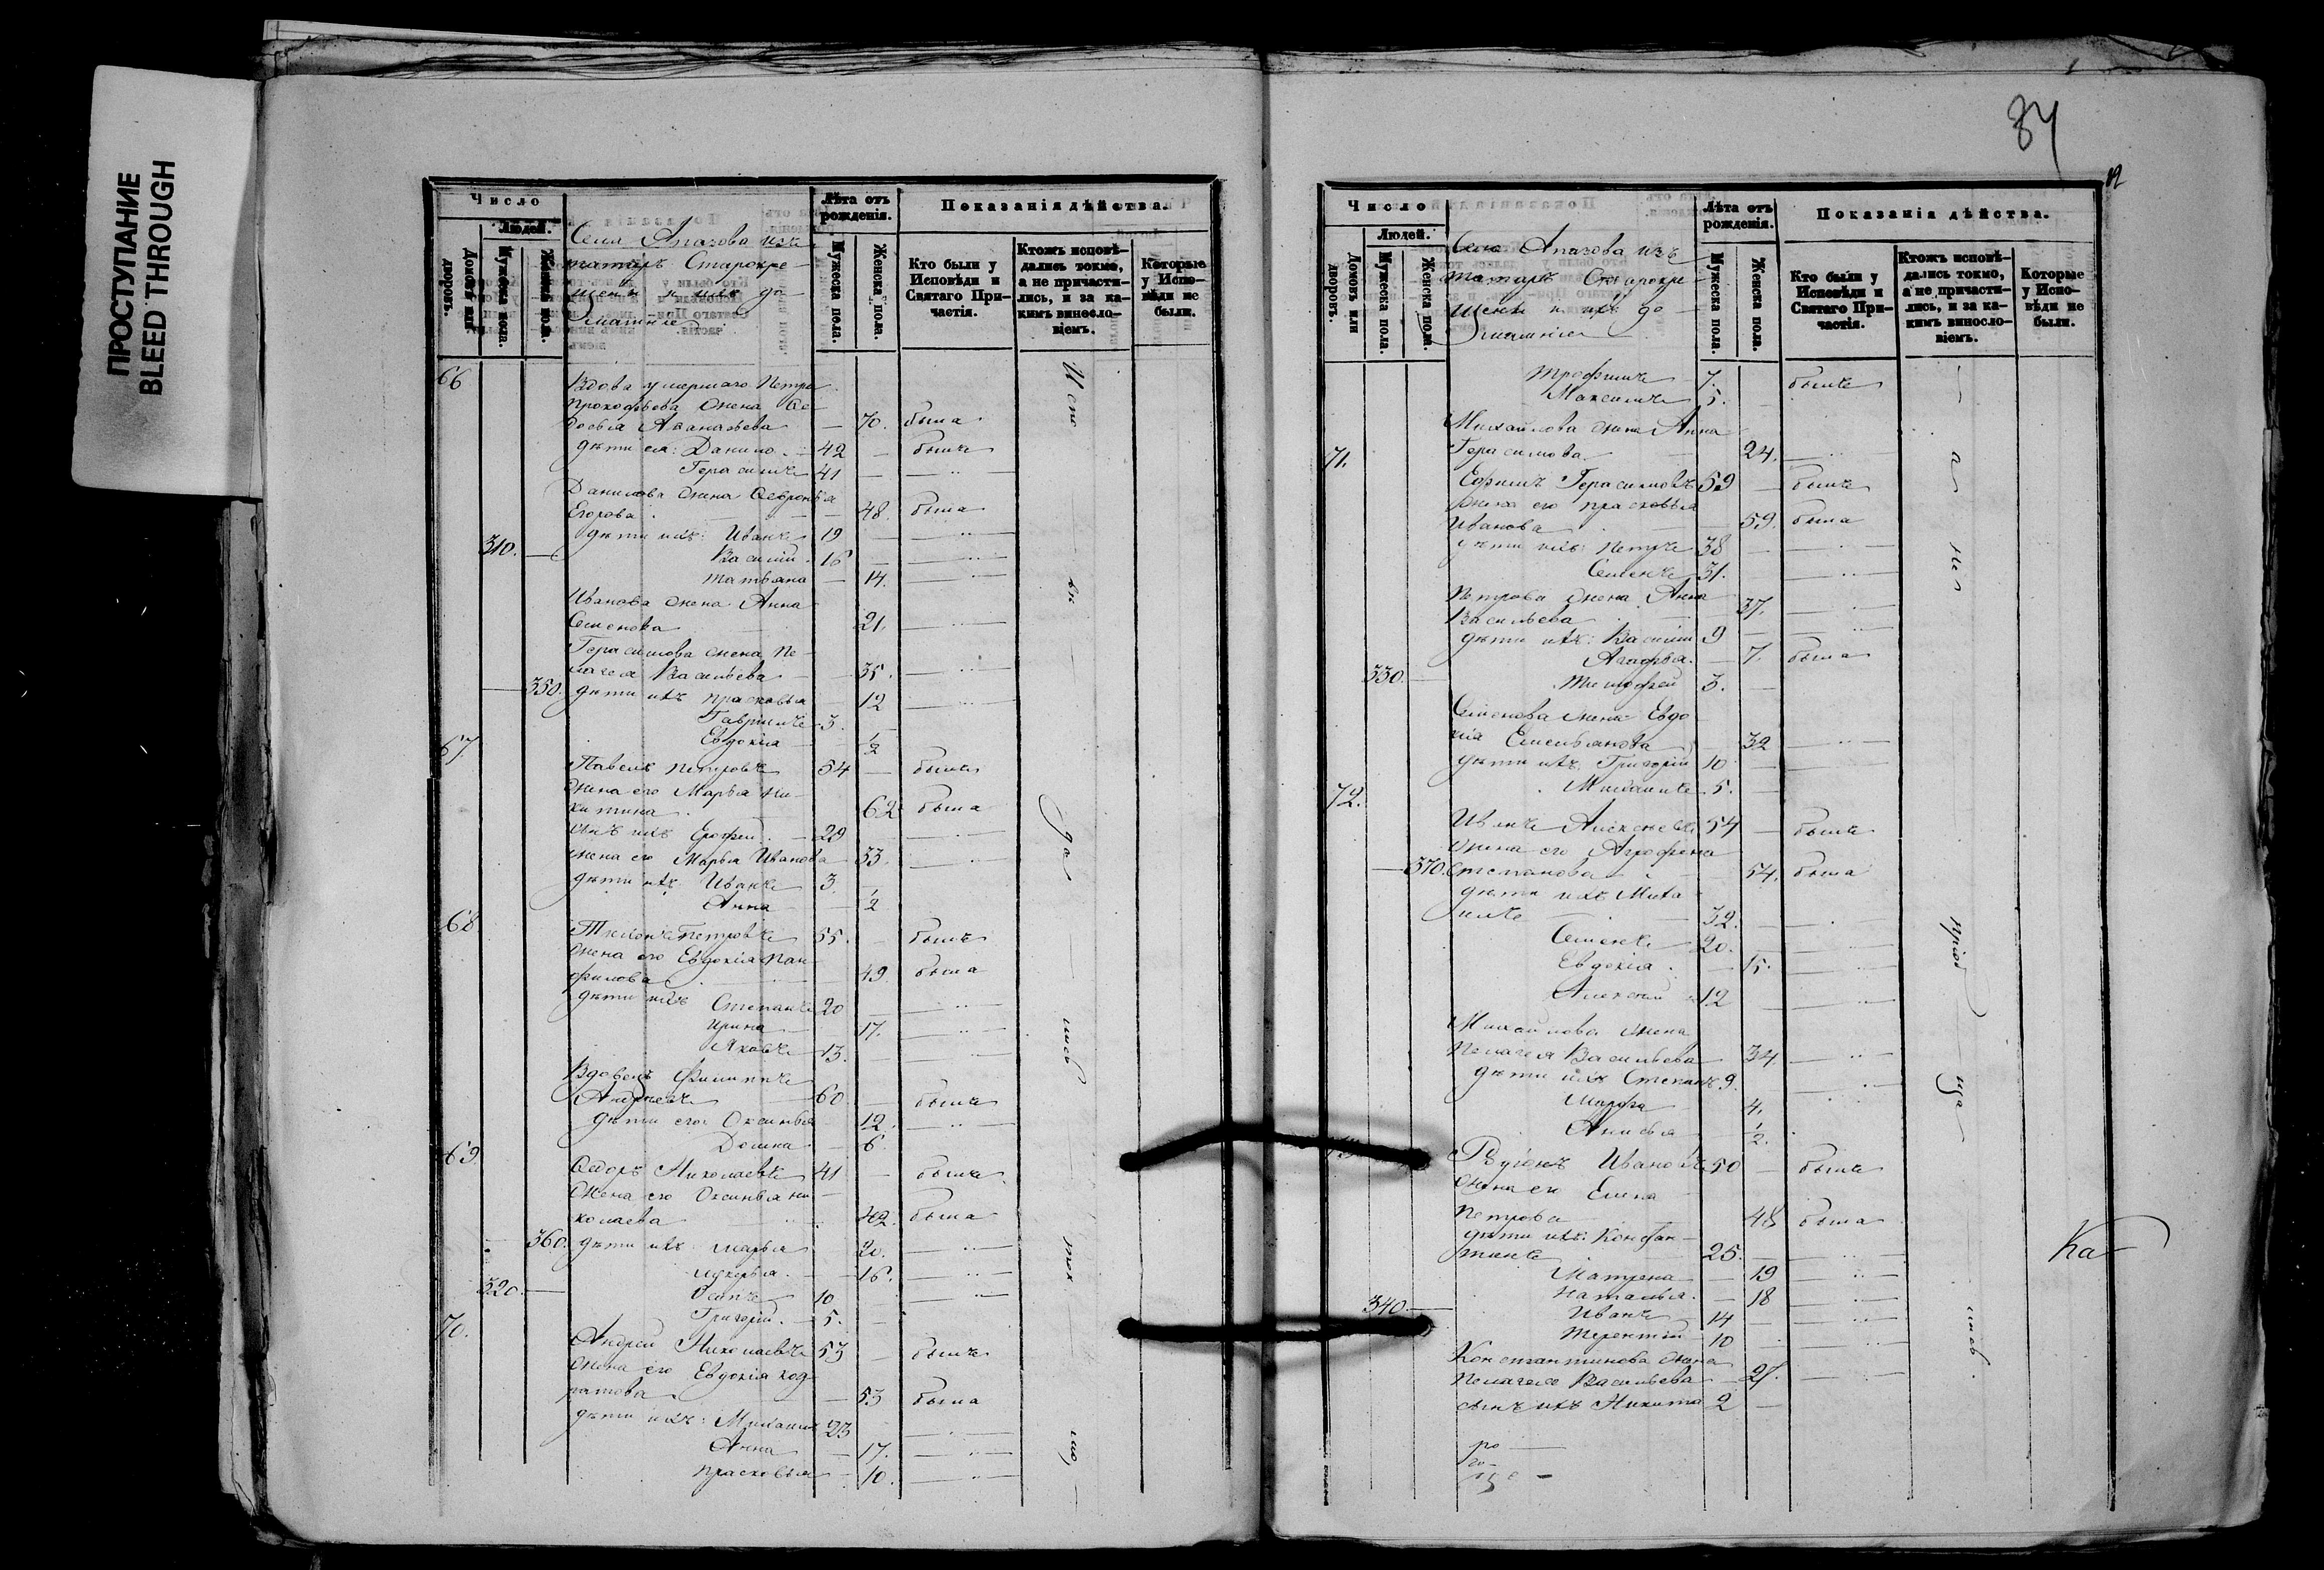 ПРОСТУПАНИЕ
BLEED THROUGH
Число
Людей.
Домовъ или дворовъ.
Мужеска пола.
Женска пола.
Села Апазова изъ
татаръ Старокре-
щенъ и ихъ до-
машніе
Лѣта отъ рожденія.
Мужеска пола.
Женска пола.
Показанія дѣйства.
Кто были у Исповѣди и Святаго При-частія.
Ктожъ исповѣ-дались токмо, а не причасти-лись, и за ка-кимъ винословіемъ.
Которые у Испо-вѣди не были.
66
Вдова умершаго Петра
Прокофьева жена Ѳе-
досья Аѳанасьева — 70. была
дѣти ея: Данило. — 42 — былъ
Герасимъ 41 — — " —
Данилова жена Ѳевронья
Егорова. — 48. была
дѣти ихъ: Иванъ 19 — " —
310. — Василій. 16 — " —
Татьяна — 14. — " —
Иванова жена Анна
Семенова 21. — " —
Герасимова жена Пе-
лагея Васильева — 35. — " —
— 350. дѣти ихъ Прасковья 12 — " —
Гаврилъ 3. —
Евдокія 1/2
67.
Павелъ Петровъ 54 — былъ
жена его Марья Ни-
китина. 62 была
сынъ ихъ Ерофей. — 29 — " —
жена его Марья Иванова 33. — " —
дѣти ихъ Иванъ 3. —
Анна — 1/2
68
Тихонъ Петровъ 55. — былъ
жена его Евдокія Пан-
филова 49. была
дѣти ихъ Степанъ 20 — " —
Ирина — 17. — " —
Яковъ 13. — " —
Вдовецъ Филиппъ
Андреевъ 60 — былъ
дѣти его: Оксинья 12. — " —
Домна 6.
69.
Ѳедоръ Николаевъ 41 — былъ
жена его Оксинья Ни-
колаева 42. была
— 360. дѣти ихъ: Марья 20. — " —
Лукерья. — 16. — " —
320. — Осипъ 10 — " —
Григорій. — 5. —
70.
Андрей Николаевъ 53 — былъ
жена его Евдокія Код-
ратова — 53 была
дѣти ихъ: Михаилъ 23 — " —
Анна — 17. — " —
Прасковья — 10. — " —
Испо — вѣ — да — лись — ток — мо, —
84
Число
Людей.
Домовъ или дворовъ.
Мужеска пола.
Женска пола.
Села Апазова изъ
татаръ Старокре-
щенъ и ихъ до-
машніе
Лѣта отъ рожденія.
Мужеска пола.
Женска пола.
Показанія дѣйства.
Кто были у Исповѣди и Святаго При-частія.
Ктожъ исповѣ-дались токмо, а не причасти-лись, и за ка-кимъ винословіемъ.
Которые у Испо-вѣди не были.
Трофимъ 7. былъ
Максимъ 5. —
Михайлова жена Анна
Герасимова 24. — " —
71.
Ефимъ Герасимовъ 59 — былъ
жена его Прасковья
Иванова — 59. была
дѣти ихъ: Петръ 38 — " —
Семенъ 31. — " —
Петрова жена Анна
Васильева 37. — " —
дѣти ихъ: Василій 9 — " —
Агафья. — 7. была
330. — Тимофей 3. —
Семенова жена Евдо-
кія Емельянова 32 — " —
дѣти ихъ: Григорій 10 —
Михаилъ 5. —
72.
Иванъ Алексѣевъ 54 — былъ
жена его Агрофена
— 370. Степанова — 54. была
дѣти ихъ Миха-
илъ — 32. — " —
Семенъ 20. — " —
Евдокія. — 15. — " —
Алексѣй 12 — " —
Михайлова жена
Пелагея Васильева 34. — " —
дѣти ихъ Степанъ 9. — " —
Марфа 4.
Анисья 1/2.
Родіонъ Ивановъ 50 — былъ
жена его Елена
Петрова 48 была
дѣти ихъ: Констан-
тинъ 25. — " —
Матрена — 19 — " —
Наталья. — 18 — " —
340. — Иванъ 14 — " —
Терентій 10 — " —
Константинова жена
Пелагея Васильева — 27. — " —
сынъ ихъ Никита 2 —
— а — не — пріоб — ща — лись.
Ка —